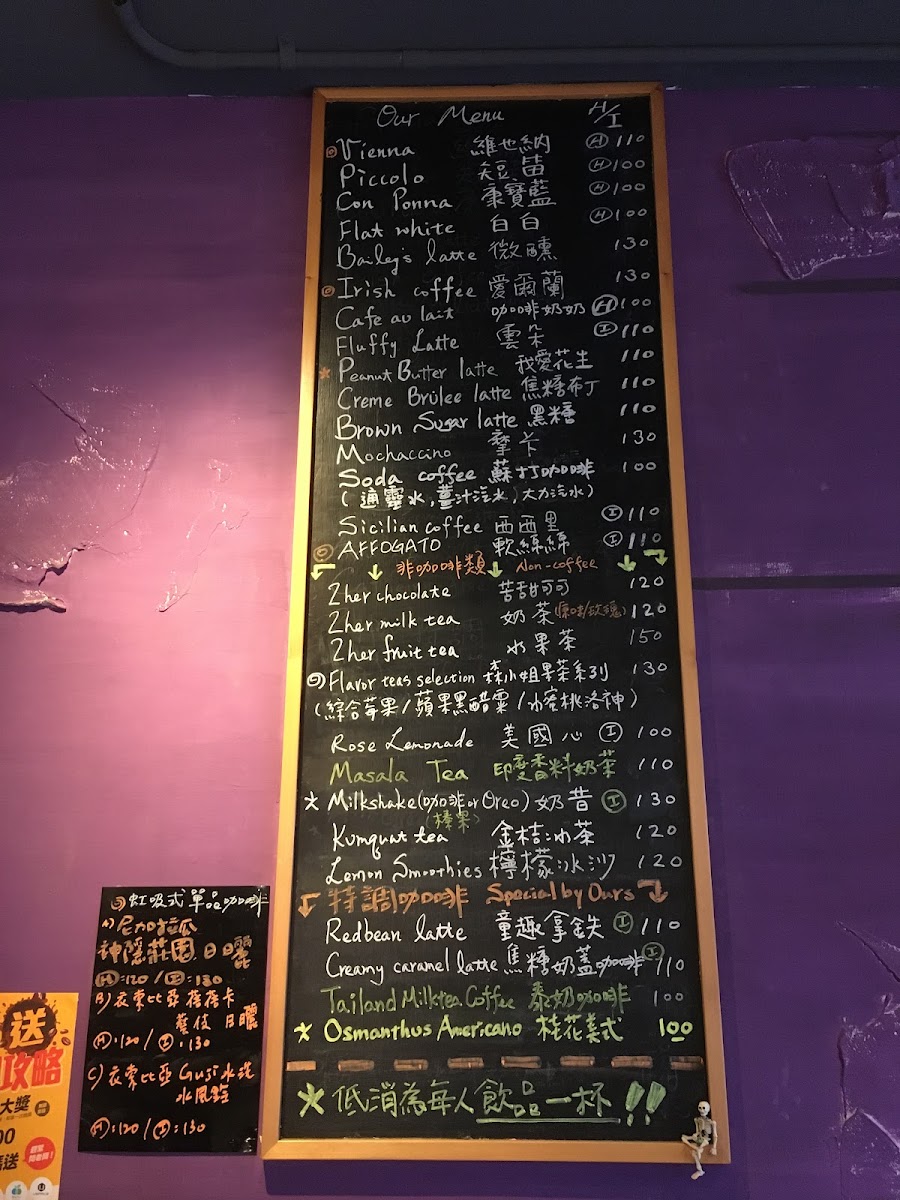 Our Menu H/I
Vienna 維也納 Ⓗ 110
Piccolo 短笛 Ⓗ 100
Con Ponna 康寶藍 Ⓗ 100
Flat white 白白 Ⓗ 100
Bailey's latte 微醺 130
Irish coffee 愛爾蘭 130
Cafe au lait 咖啡奶奶 Ⓗ 100
Fluffy Latte 雲朵 Ⓘ 110
Peanut Butter latte 我愛花生 110
Creme Brûlee latte 焦糖布丁 110
Brown Sugar latte 黑糖 110
Mochaccino 摩卡 130
Soda coffee 蘇打咖啡 100
(通靈水,薑汁汽水,大力汽水)
Sicilian coffee 西西里 Ⓘ 110
AFFOGATO 軟綿綿 Ⓘ 110
非咖啡類 Non-coffee
2her chocolate 苦甜可可 120
2her milk tea 奶茶(原味/玫瑰) 120
2her fruit tea 水果茶 150
Flavor teas selection 森小姐果茶系列 130
(綜合莓果/蘋果黑醋粟/水蜜桃洛神)
Rose Lemonade 美國心 Ⓘ 100
Masala Tea 印度香料奶茶 110
Milkshake(咖啡or Oreo) 奶昔 Ⓘ 130
(榛果)
Kumquat tea 金桔冰茶 120
Lemon Smoothies 檸檬冰沙 120
特調咖啡 Special by Ours
Redbean latte 童趣拿鉄 Ⓘ 110
Creamy caramel latte 焦糖奶蓋咖啡 Ⓘ 110
Tailand Milktea Coffee 泰奶咖啡 100
Osmanthus Americano 桂花美式 100
低消為每人飲品一杯!!
虹吸式單品咖啡
A) 尼加拉瓜
神隱莊園 日曬
Ⓗ:120 / Ⓘ:130
B) 衣索比亞 蓓蓓卡
藝伎 日曬
Ⓗ:120 / Ⓘ:130
C) 衣索比亞 Guji 水洗
水風鈴
Ⓗ:120 / Ⓘ:130
送
攻略
大獎